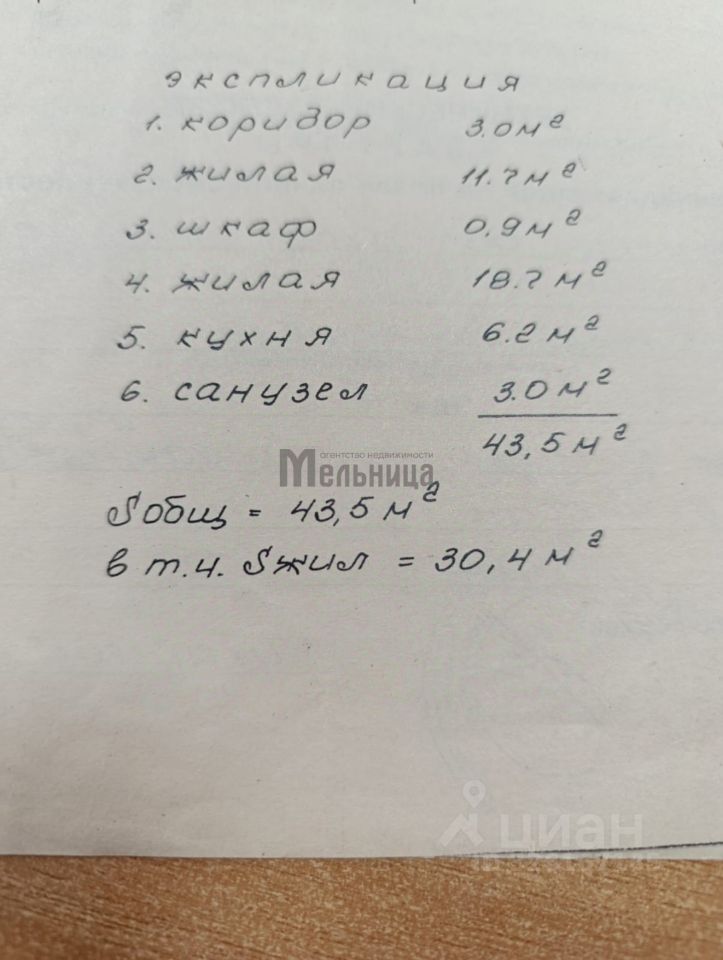 экспликация
1. коридор 3.0 м²
2. жилая 11.7 м²
3. шкаф 0,9 м²
4. жилая 18.7 м²
5. кухня 6.2 м²
6. санузел 3.0 м²
43,5 м²
агентство недвижимости
Мельница
Sобщ = 43,5 м²
в т.ч. Sжил = 30,4 м²
циан